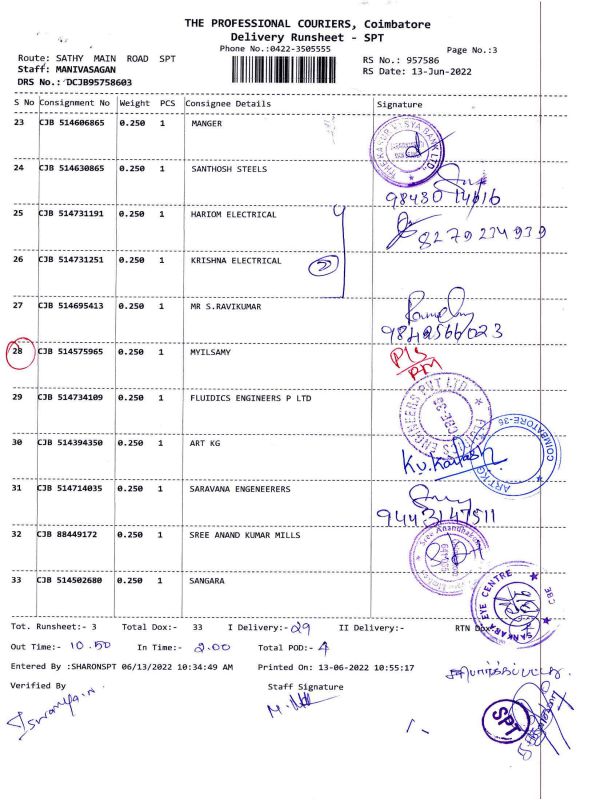 THE PROFESSIONAL COURIERS, Coimbatore
Delivery Runsheet - SPT
Phone No.:0422-3505555
Page No.:3
Route: SATHY MAIN ROAD SPT
RS No.: 957586
Staff: MANIVASAGAN
RS Date: 13-Jun-2022
DRS No.: DCJB95758603
S No Consignment No Weight PCS Consignee Details Signature
23 CJB 514606865 0.250 1 MANGER
24 CJB 514630865 0.250 1 SANTHOSH STEELS
98430 14616
25 CJB 514731191 0.250 1 HARIOM ELECTRICAL
8279234939
26 CJB 514731251 0.250 1 KRISHNA ELECTRICAL
2
27 CJB 514695413 0.250 1 MR S.RAVIKUMAR
9842566023
28 CJB 514575965 0.250 1 MYILSAMY
P/S
PM
29 CJB 514734109 0.250 1 FLUIDICS ENGINEERS P LTD
CBE-35
30 CJB 514394350 0.250 1 ART KG
K.V. Kailash
COIMBATORE-35
ART KG
31 CJB 514714035 0.250 1 SARAVANA ENGENEERERS
9443147511
32 CJB 88449172 0.250 1 SREE ANAND KUMAR MILLS
33 CJB 514502680 0.250 1 SANGARA
SANKARA EYE CENTRE
CBE
Tot. Runsheet:- 3 Total Dox:- 33 I Delivery:- 29 II Delivery:- RTN Dox:-
Out Time:- 10.50 In Time:- 2.00 Total POD:- 4
Entered By :SHARONSPT 06/13/2022 10:34:49 AM Printed On: 13-06-2022 10:55:17
Verified By Staff Signature
SPT